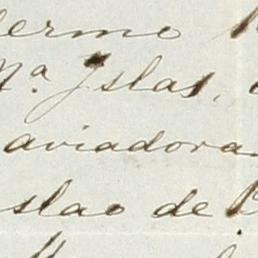 lermo
Mª Islas,
aviadora
slao de